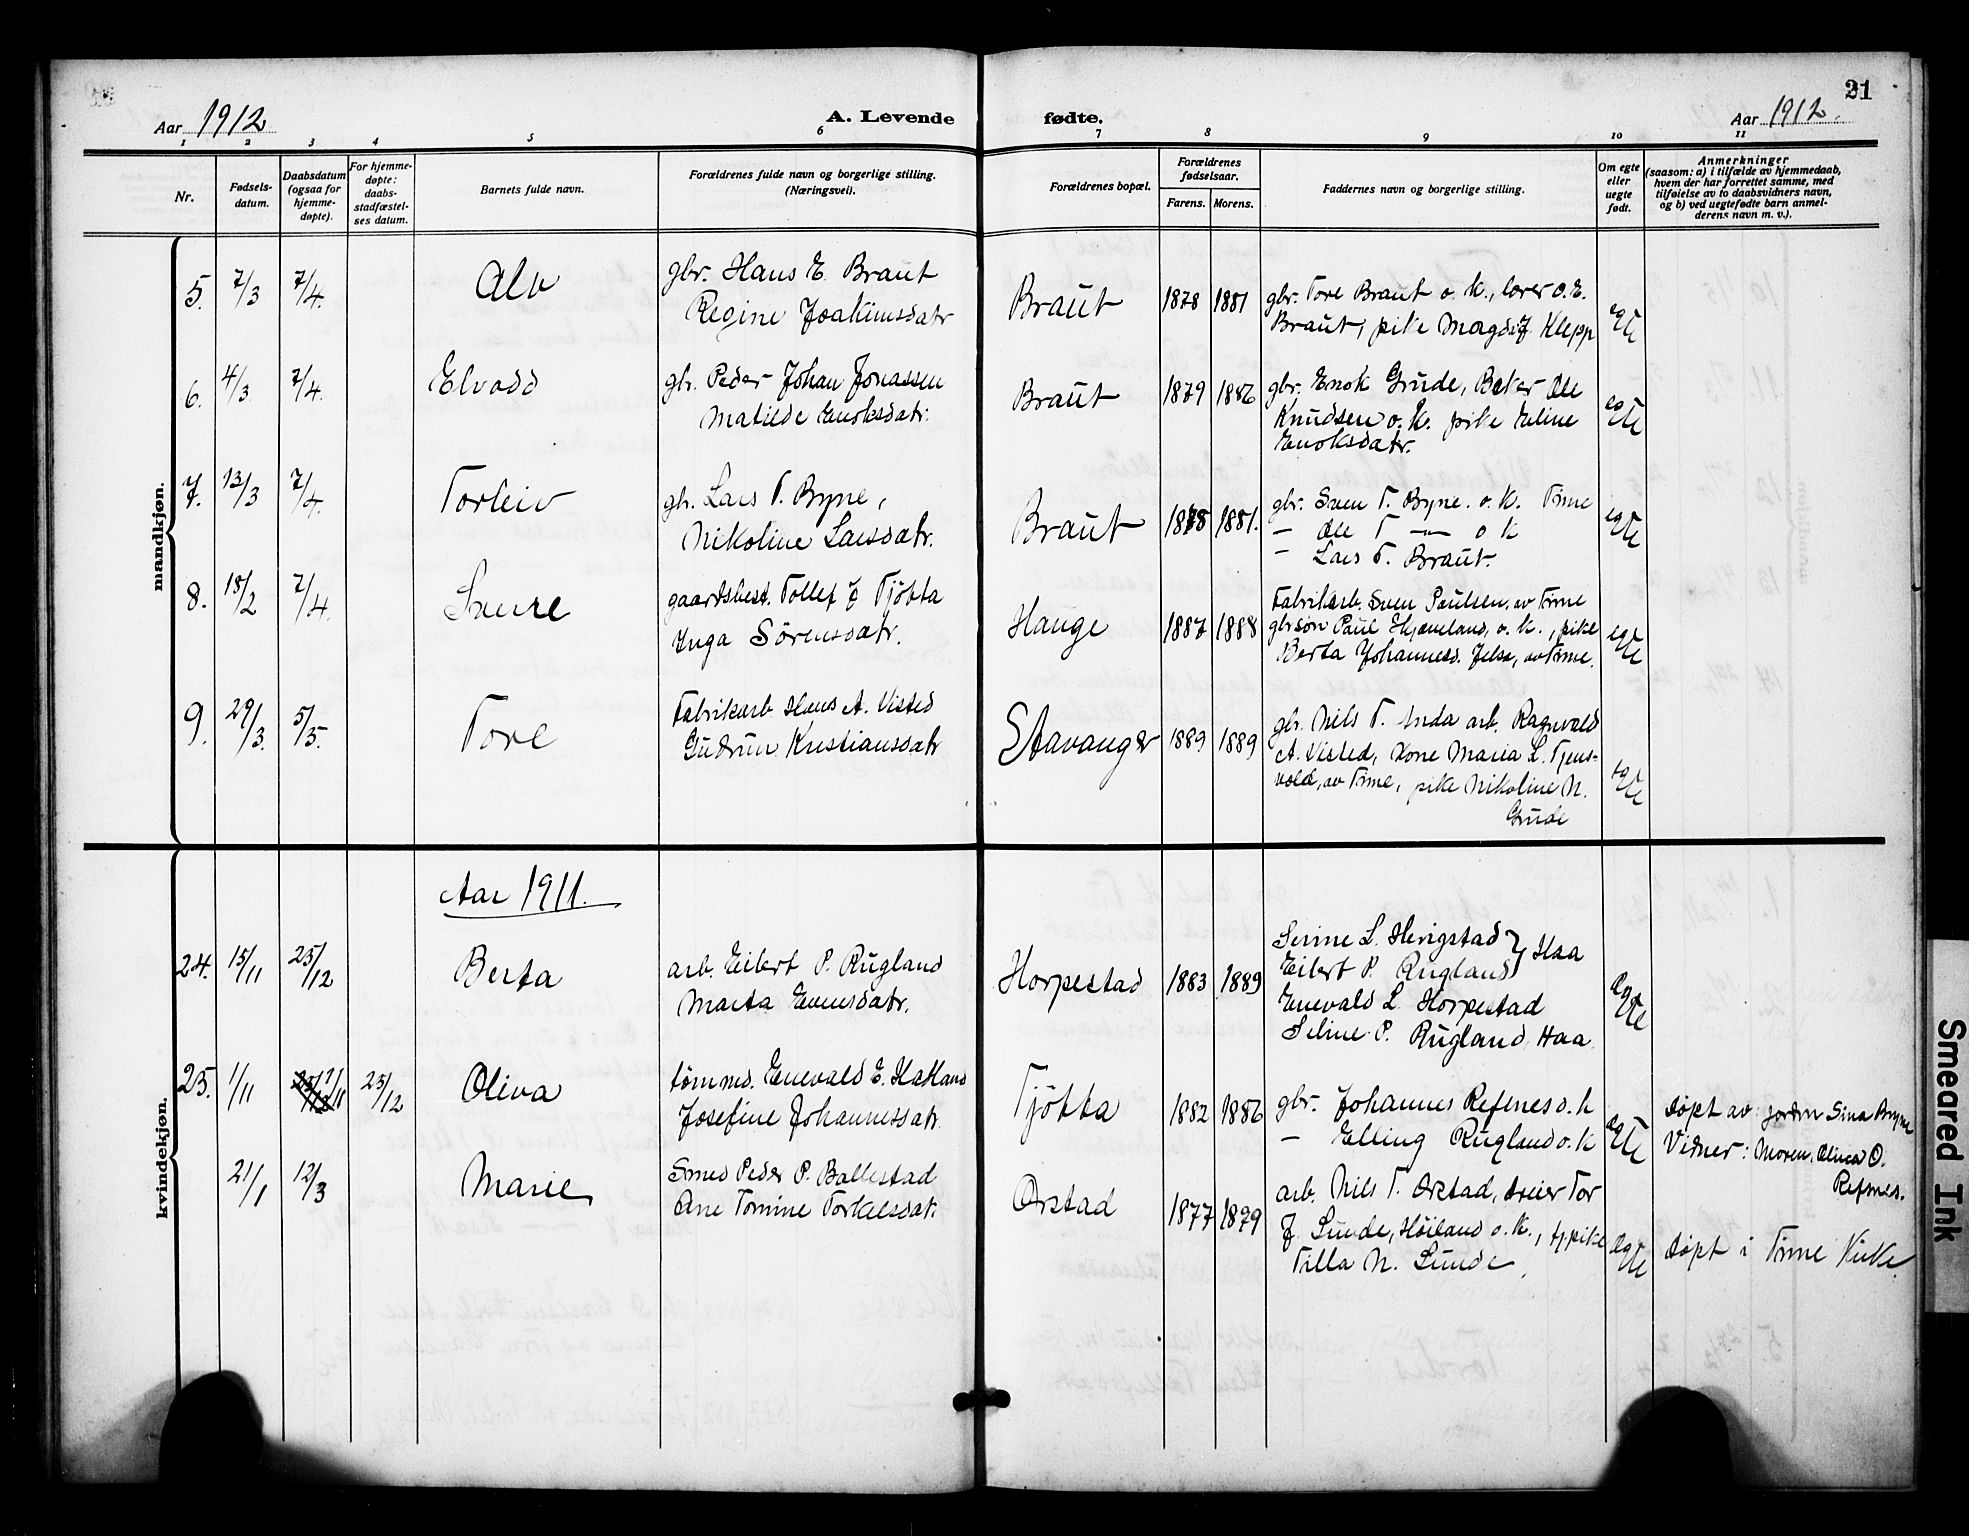 21
Aar 1912
A. Levende fødte.
Aar 1912.
1 2 3 4 5 6 7 8 9 10 11
Nr.
Fødsels-
datum.
Daabsdatum
(ogsaa for
hjemme-
døpte).
For hjemme-
døpte:
daabs-
stadfæstel-
ses datum.
Barnets fulde navn.
Forældrenes fulde navn og borgerlige stilling.
(Næringsvei).
Forældrenes bopæl.
Forældrenes
fødselsaar.
Farens. Morens.
Faddernes navn og borgerlige stilling.
Om egte
eller
uegte
født.
Anmerkninger
(saasom: a) i tilfælde av hjemmedaab,
hvem der har forrettet samme, med
tilføielse av to daabsvidners navn,
og b) ved uegtefødte barn anmel-
derens navn m. v.).
mandkjøn.
5. 7/3 7/4. Alv
gbr. Hans E. Braut
Regine Joakimsdatr
Braut 1878 1881
gbr. Tore Braut o. k., lærer O. E.
Braut, pike Magda J. Klepp
egte
6. 4/3. 7/4. Elvadd
gbr. Peder Johan Jonassen
Matilde Enoksdatr.
Braut 1879 1886
gbr. Enok Grude, Baker Ole
Knudsen o. k. pike Eline
Enoksdatr.
egte
7. 13/3 7/4. Torleiv
gbr. Lars T. Bryne,
Nikoline Larsdatr.
Braut 1878 1881.
gbr. Sven T. Bryne. o. k. Time
— Ole T — o k
— Lars T. Braut.
egte
8. 18/2 7/4. Sverre
gaardsbest. Tollef J Tjötta
Inga Sörensdatr.
Hauge 1887 1888
Fabrikarb. Sven Paulsen, av Time
gbrsön Paul Skjæveland, o. k., pike
Berta Johannesd. Jelsa, av Time.
egte
9. 29/3. 5/5. Tore
Fabrikarb Hans A. Visted
Gudrun Kristiansdatr
Stavanger 1889 1889
gbr. Nils T. Anda arb. Ragnvald
A. Visted, Kone Maria L. Tjens-
vold, av Time, pike Nikoline N.
Grude
egte
kvindekjøn.
Aar 1911.
24. 15/11 25/12 Berta
arb. Eilert P. Rugland
Marta Evensdatr.
Horpestad 1883 1889
Serine L. Herigstad } Haa
Eilert P. Rugland
Enevald L Horpestad
Seline P. Rugland, Haa.
egte
25. 1/11 1/11 25/12 Oliva
tømmd. Enevald E. Hatland
Josefine Johannesdatr.
Tjötta 1882 1886
gbr. Johannes Refsnes o. k
— Elling Rugland o. k
egte
døpt av jordm Sina Bryne
Vidner: Moren, Olivia O.
Refsnes.
21/1 12/3 Marie
Smed Peder P. Ballestad
Ane Tomine Torkelsdatr.
Orstad 1877 1879
arb. Nils T. Orstad, dreier Tor
J Sunde, Høiland o. k., tj. pike
Tilla N. Sunde
egte
døpt i Time Kirke.
Smeared Ink